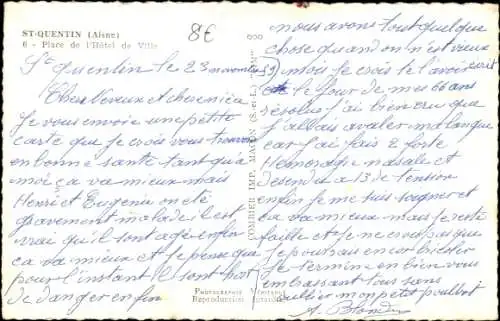 ST-QUENTIN (Aisne)
6 - Place de l'Hôtel de Ville
8€
St Quentin le 23 novembre 59
Chers Neveux et chere nièce
Je vous envoie une petite
carte que je crois vous trouver
en bonne santé tant qu'à
moi ça va mieux mais
Henri et Eugenie on eté
gravement malade il est
vrai qu'il sont agé enfin
ça va mieux et je pense que
pour l'instant il sont hors
de danger enfin
COMBIER IMP. MACON (S.-et-L.)
Photographie Véritable
Reproduction Interdite
nous avons tout quelque
chose quand on n'est vieux
moi je crois te l'avoir écrit
le jour de mes 66 ans
résolus j'ai bien cru que
j'allais avaler ma langue
car j'ai fais 2 forte
Hemoragie nasale et
desendu a 13 de tension
enfin je me suis soigner et
ça va mieux mais je reste
faible et je ne crois pas que
je pourais encor
je termine en bien vous
embrassant tous sans
oublier mon petit poulbot
A. Blondin